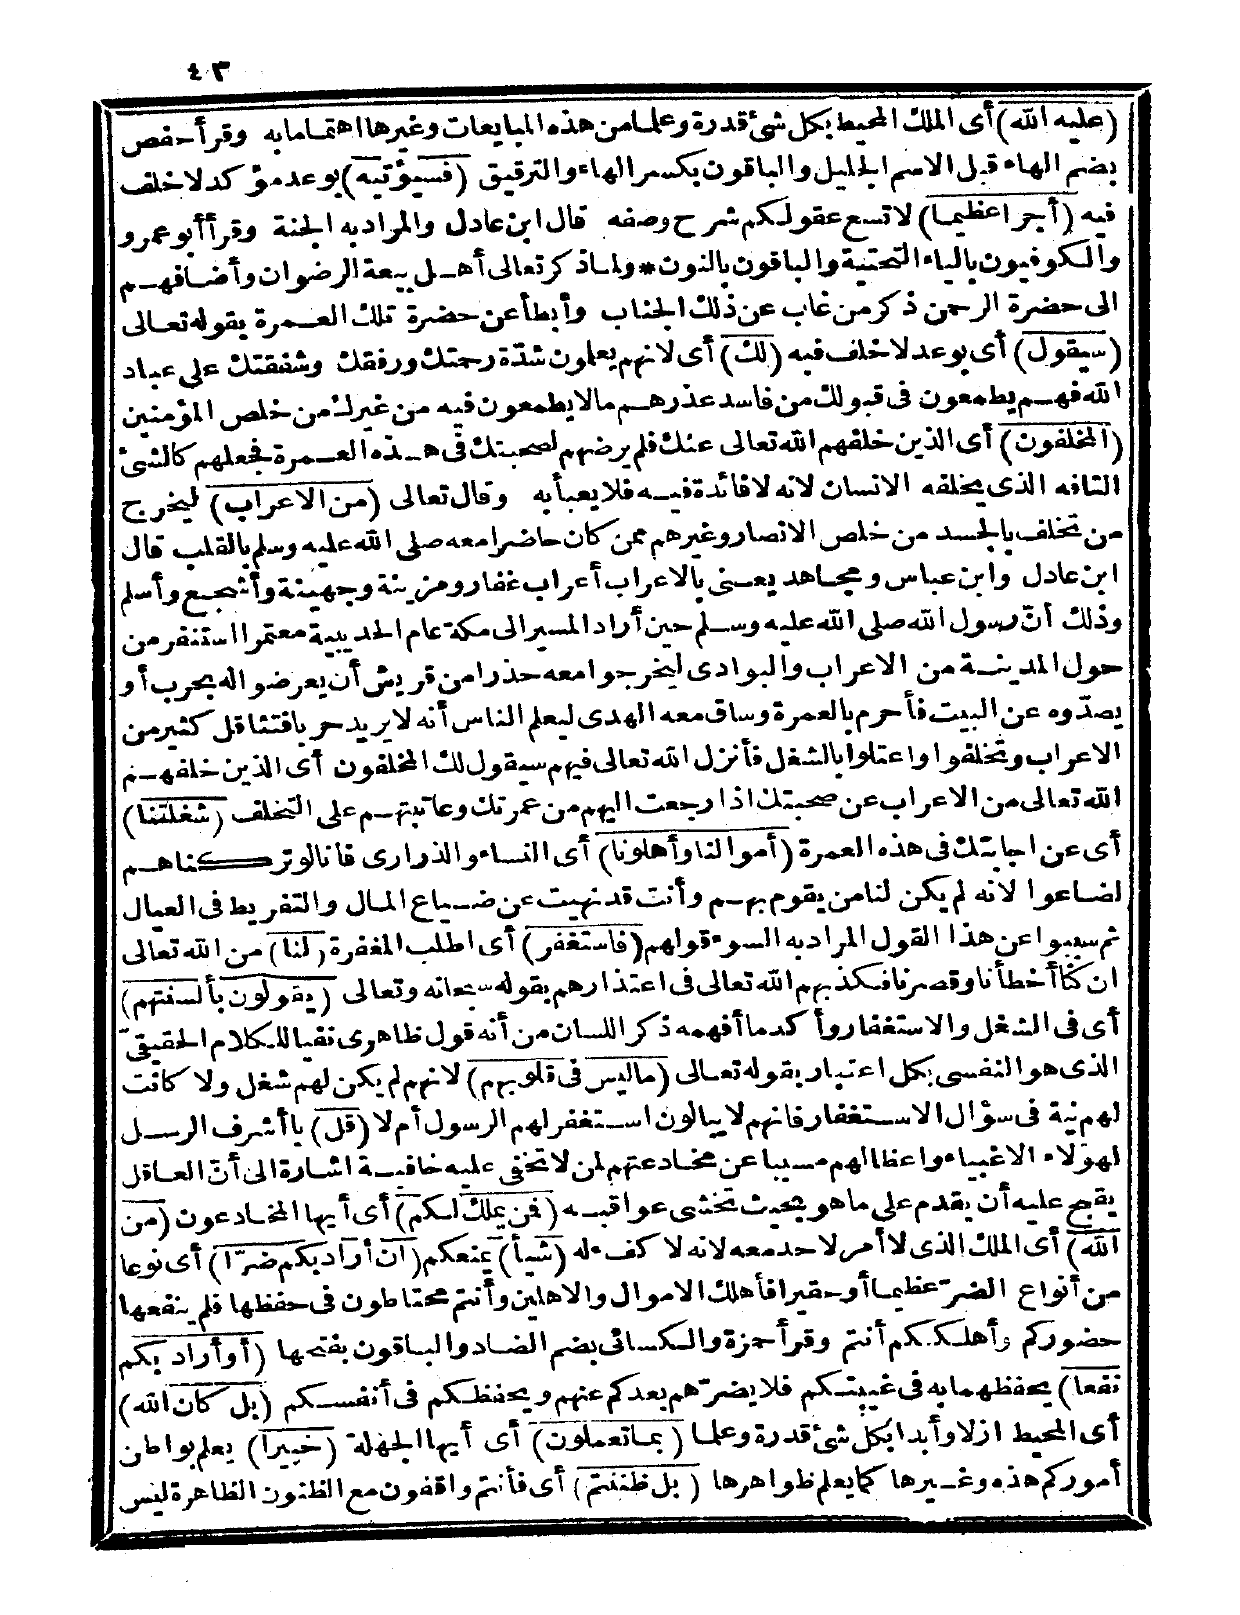 ٤٣
(عليه الله) أى الملك المحيط بكل شئ قدرة وعلما من هذه المبايعات وغيرها اهتماما به وقرأ حفص
بضم الهاء قبل الاسم الجليل والباقون بكسر الهاء والترقيق (فسيؤتيه) بوعد مؤكد لا خلف
فيه (أجرا عظيما) لا تسع عقولكم شرح وصفه قال ابن عادل والمراد به الجنة وقرأ أبو عمرو
والكوفيون بالياء التحتية والباقون بالنون * ولما ذكر تعالى أهل بيعة الرضوان وأضافهم
الى حضرة الرحمن ذكر من غاب عن ذلك الجناب وأبطأ عن حضرة تلك العمرة بقوله تعالى
(سيقول) أى بوعد لا خلف فيه (لك) أى لانهم يعلمون شدّة رحمتك ورفقك وشفقتك على عباد
الله فهم يطمعون فى قبولك من فاسد عذرهم ما لا يطمعون فيه من غيرك من خلص المؤمنين
(المخلفون) أى الذين خلفهم الله تعالى عنك فلم يرضهم لصحبتك فى هذه العمرة فجعلهم كالشئ
التافه الذى يخلفه الانسان لانه لا فائدة فيه فلا يعبأ به وقال تعالى (من الاعراب) ليخرج
من تخلف بالجسد من خلص الانصار وغيرهم ممن كان حاضرا معه صلى الله عليه وسلم بالقلب قال
ابن عادل وابن عباس ومجاهد يعنى بالاعراب أعراب غفار ومزينة وجهينة وأشجع وأسلم
وذلك أنّ رسول الله صلى الله عليه وسلم حين أراد المسير الى مكة عام الحديبية معتمرا استنفر من
حول المدينة من الاعراب والبوادى ليخرجوا معه حذرا من قريش أن يعرضوا له بحرب أو
يصدّوه عن البيت فأحرم بالعمرة وساق معه الهدى ليعلم الناس أنه لا يريد حربا فتثاقل كثير من
الاعراب وتخلفوا واعتلوا بالشغل فأنزل الله تعالى فيهم سيقول لك المخلفون أى الذين خلفهم
الله تعالى من الاعراب عن صحبتك اذا رجعت اليهم من عمرتك وعاتبتهم على التخلف (شغلتنا)
أى عن اجابتك فى هذه العمرة (أموالنا وأهلونا) أى النساء والذرارى فانا لو تركناهم
لضاعوا لانه لم يكن لنا من يقوم بهم وأنت قد نهيت عن ضياع المال والتفريط فى العيال
ثم سببوا عن هذا القول المراد به السوء قولهم (فاستغفر) أى اطلب المغفرة (لنا) من الله تعالى
ان كنّا أخطأنا وقصرنا فكذبهم الله تعالى فى اعتذارهم بقوله سبحانه وتعالى (يقولون بألسنتهم)
أى فى الشغل والاستغفار وأكد ما أفهمه ذكر اللسان من أنه قول ظاهرى نفيا للكلام الحقيقىّ
الذى هو النفسى بكل اعتبار بقوله تعالى (ما ليس فى قلوبهم) لانهم لم يكن لهم شغل ولا كانت
لهم نية فى سؤال الاستغفار فانهم لا يبالون استغفر لهم الرسول أم لا (قل) يا أشرف الرسل
لهؤلاء الاغبياء واعظا لهم مسببا عن مخادعتهم لمن لا تخفى عليه خافية اشارة الى أنّ العاقل
يقبح عليه أن يقدم على ما هو بحيث تخشى عواقبه (فمن يملك لكم) أى أيها المخادعون (من
الله) أى الملك الذى لا أمر لاحد معه لانه لا كفء له (شيأ) يمنعكم (ان أراد بكم ضرّا) أى نوعا
من أنواع الضرّ عظيما أو حقيرا فأهلك الاموال والاهلين وأنتم محتاطون فى حفظها فلم ينفعها
حضوركم وأهلككم أنتم وقرأ حمزة والكسائى بضم الضاد والباقون بفتحها (أو أراد بكم
نفعا) يحفظهما به فى غيبتكم فلا يضرّهم بعدكم عنهم ويحفظكم فى أنفسكم (بل كان الله)
أى المحيط ازلا وأبدا بكل شئ قدرة وعلما (بما تعملون) أى أيها الجهلة (خبيرا) يعلم بواطن
أموركم هذه وغيرها كما يعلم ظواهرها (بل ظننتم) أى فأنتم واقفون مع الظنون الظاهرة ليس